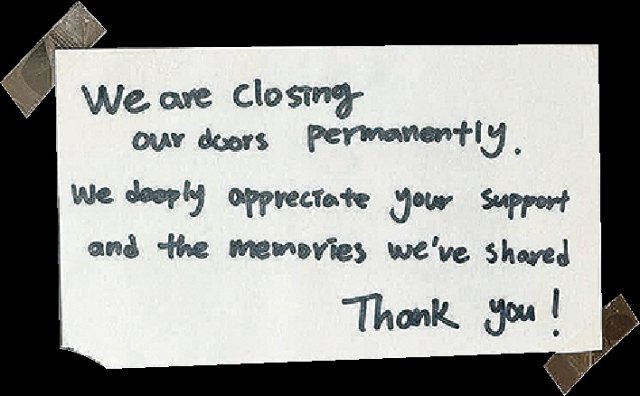 We are closing
our doors permanently.
We deeply appreciate your support
and the memories we've shared
Thank you!